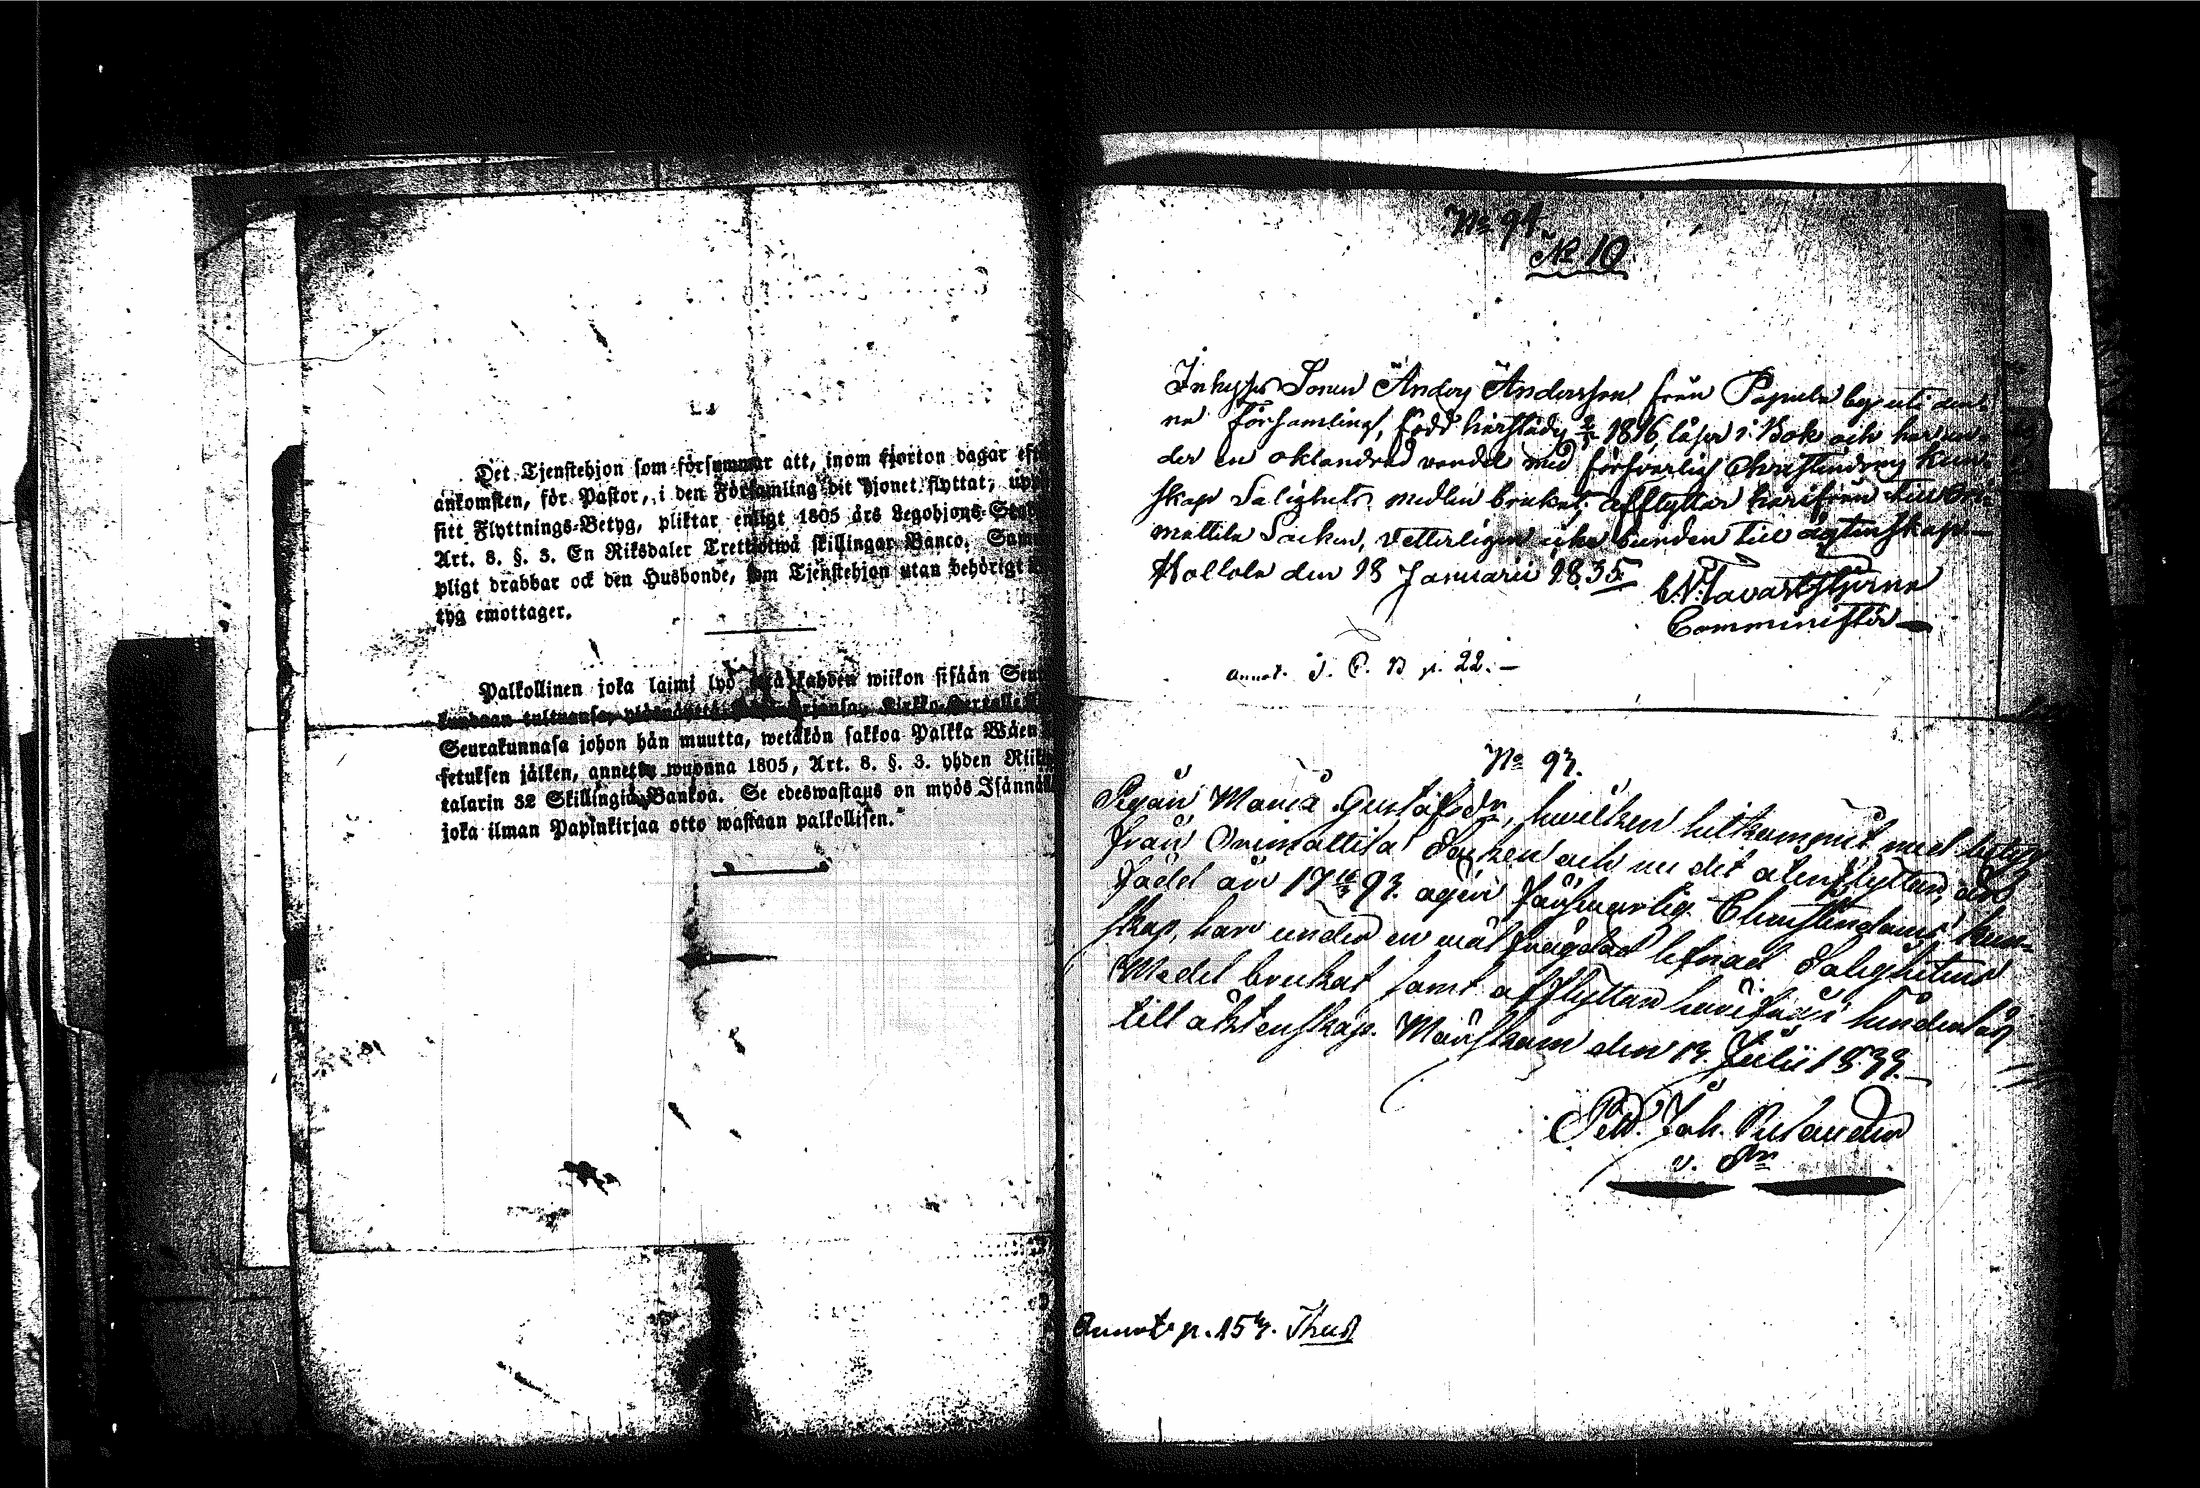 Det Tjenstehjon som försummar att, inom fjorton dagar eft
ankomsten, för Pastor, i den Församling dit hjonet flyttat, upp
sitt Flyttnings-Betyg, pliktar enligt 1805 års Legohjons-Stad
Art. 8. §. 3. En Riksdaler Trettiotwå skillingar Banco. Sam
pligt drabbar ock den Husbonde, som Tjenstehjon utan behörigt
tyg emottager.
Palkollinen joka laimi lyö että kahden wiikon sisään Seu
kundaan tultuansa,
Seurakunnasa johon hän muutta, wetäkön sakkoa Palkka Wäen
setuksen jälken, annettu wuonna 1805, Art. 8. §. 3. yhden Riiki
talarin 32 Skillingiä Bankoa. Se edeswastaus on myös Isännällä
joka ilman Papinkirjaa otto wastaan palkollisen.
No 94.
No 10
Inhyses Sonen Anders Andersson från Papula by uti den-
na Församling, född härstädes 1816, läser i Bok och har un-
der en oklandrad vandel med försvarlig Christendoms kun-
skap Salighets medlen brukat; afflyttar härifrån till Ori-
mattila Socken, vetterligen icke bunden till ägtenskap.
Hollola den 18 Januarii 1835.
C. N. Tavaststjerna
Comminister
annot. i. C. B p. 22.
No 93.
Pigan Maria Gustafsdr, hwilken hitkommit med betyg
från Orimattila Socken och nu dit åter flyttar, är
född år 1793. äger förswarlig Christendoms kun-
skap, har under en wälfrägdad lefnad Salighetens
Medel brukat samt afflyttar härifrån hinderlös
till äktenskap. Mäntsham den 13. Julii 1833.
Petr. Joh.
v.
Annot. p. 153.